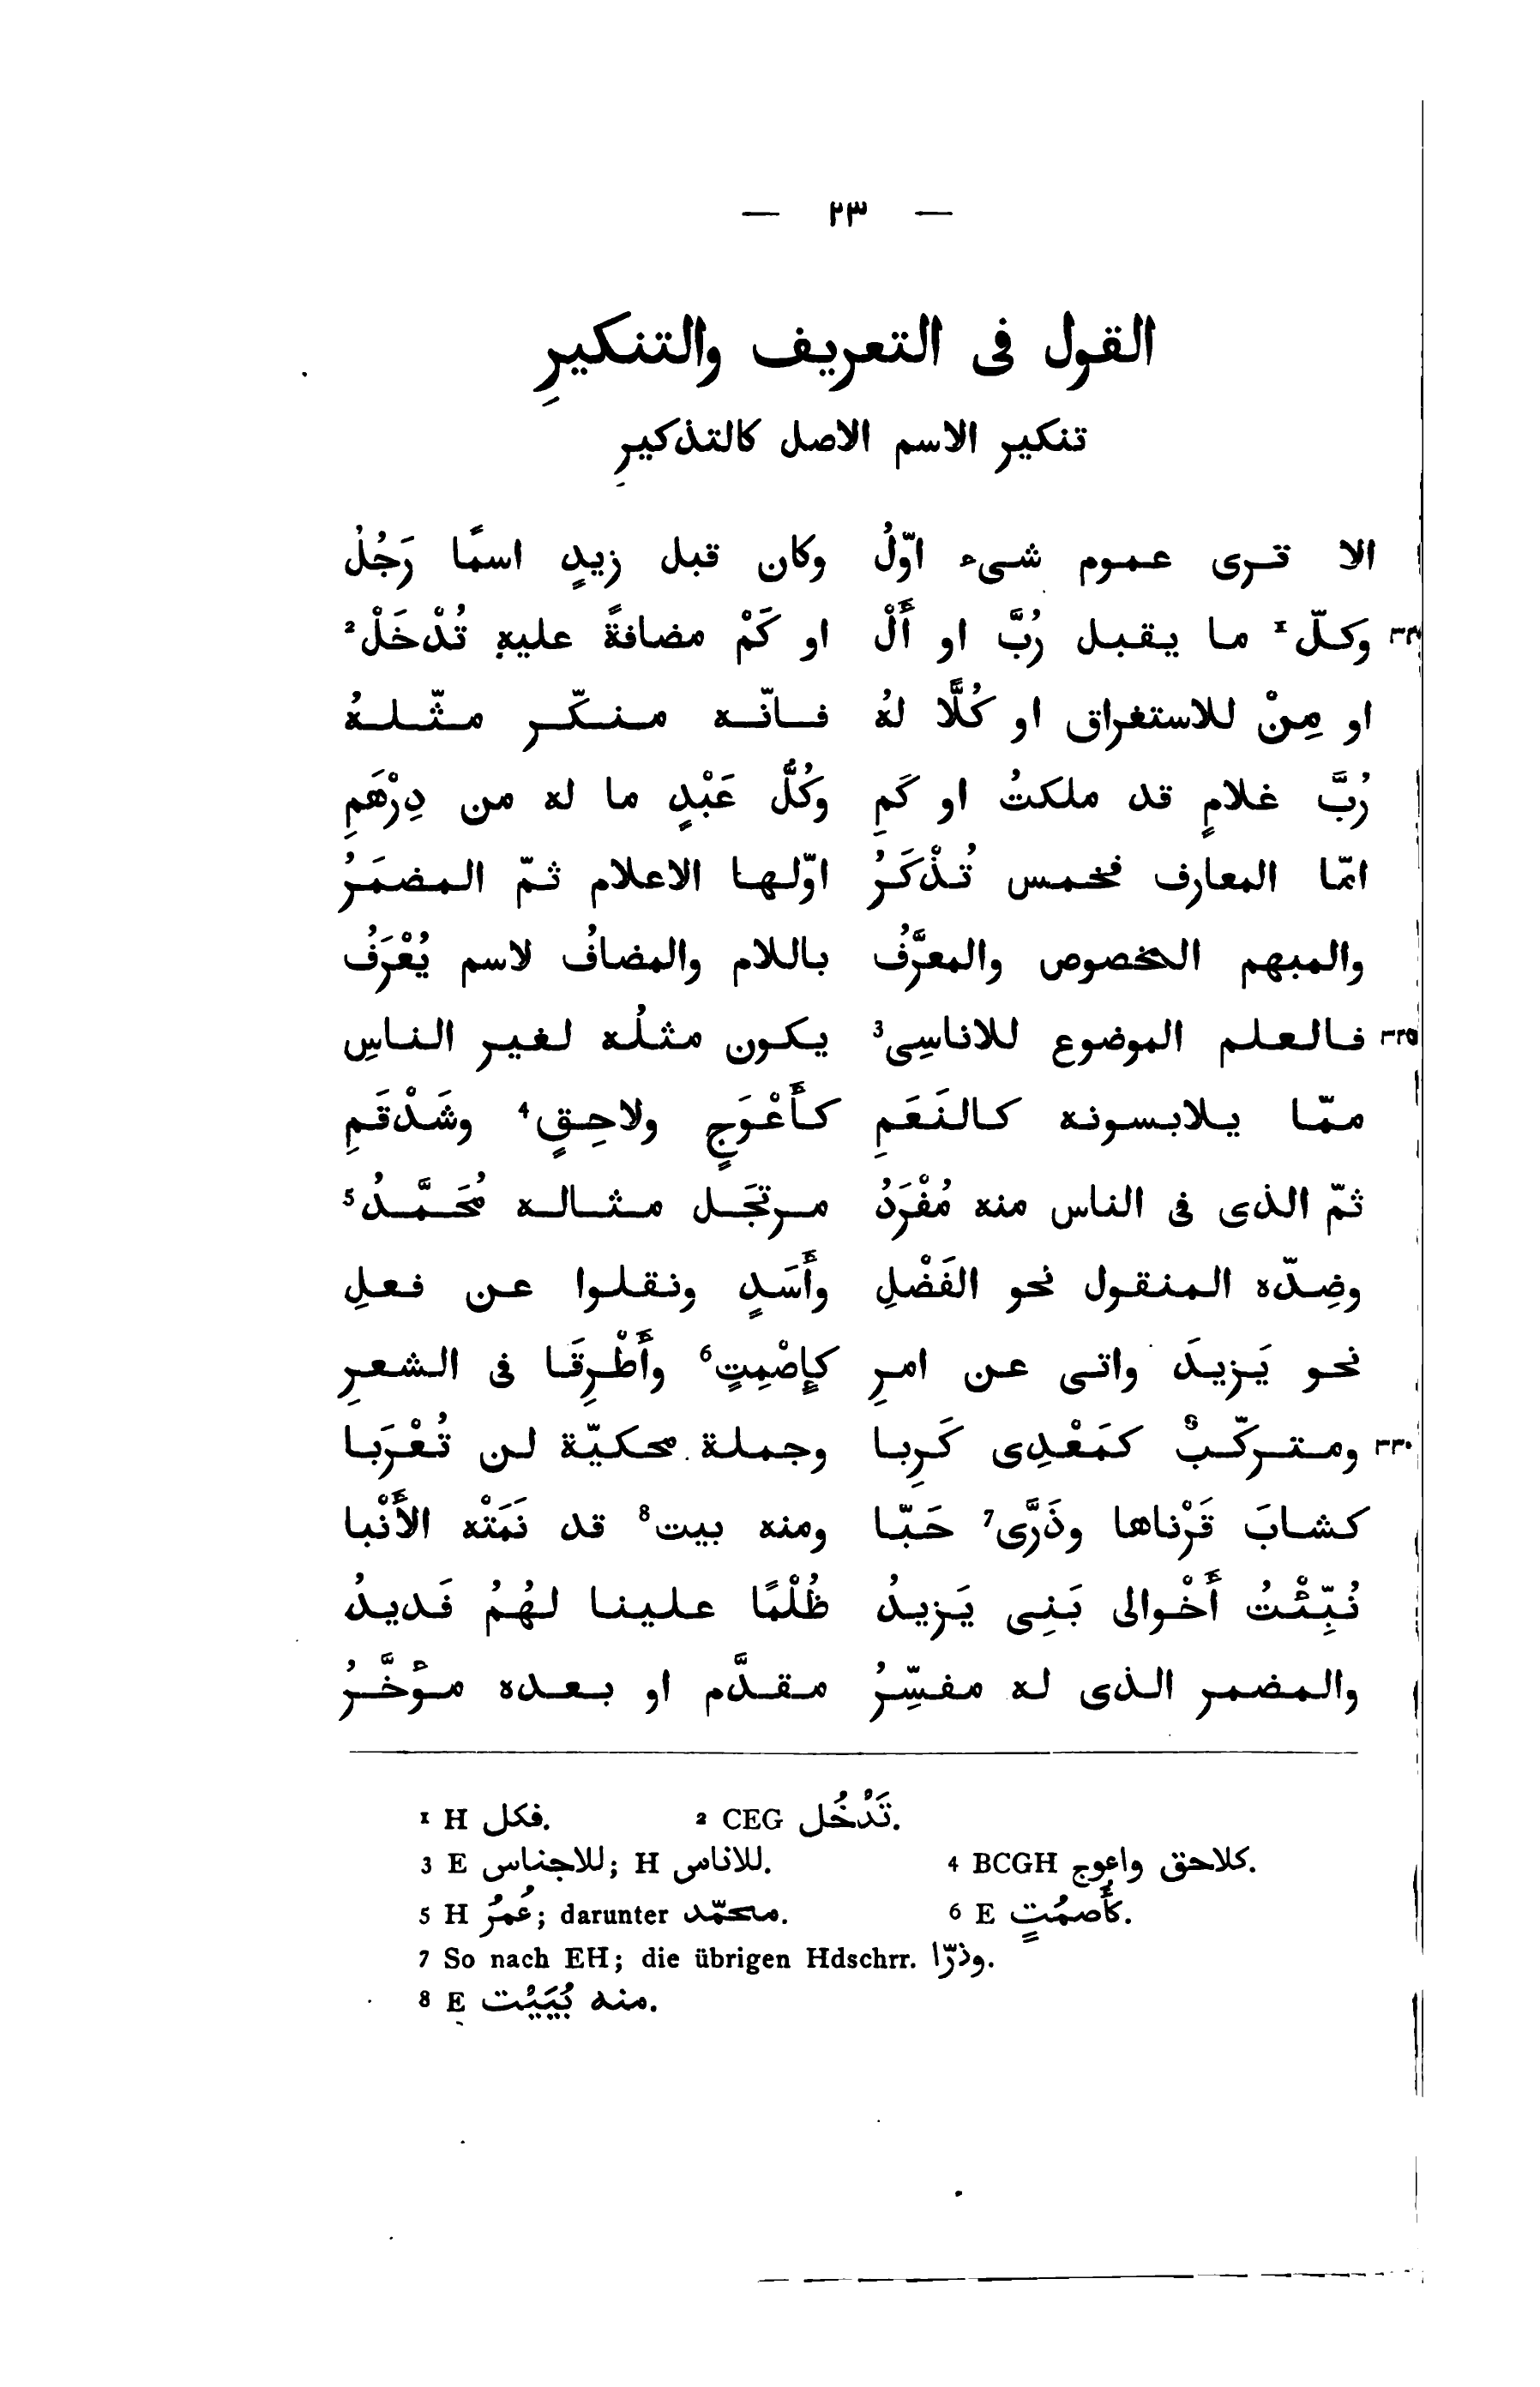 — ٢٣ —
القول فى التعريف والتنكيرِ
تنكير الاسم الاصل كالتذكيرِ
الا ترى عموم شىء اوّلُ وكان قبل زيدٍ اسمًا رَجُلُ
٣٢٠ وكلّ¹ ما يقبل رُبَّ او أَلْ او كَمْ مضافةً عليهِ تُدْخَلْ²
او مِنْ للاستغراق او كُلًّا لهُ فانّه منكّر مثّلهُ
رُبَّ غلامٍ قد ملكتُ او كَمِ وكُلُّ عَبْدٍ ما له من دِرْهَمِ
امّا المعارف فخمس تُذْكَرُ اوّلها الاعلام ثمّ المضمَرُ
والمبهم المخصوص والمعرَّفُ باللام والمضافُ لاسم يُعْرَفُ
٣٢٥ فالعلم الموضوع للاناسِى³ يكون مثلُه لغير الناسِ
ممّا يلابسونه كالنَعَمِ كأَعْوَجٍ ولاحِقٍ⁴ وشَدْقَمِ
ثمّ الذى فى الناس منه مُفْرَدُ مرتجَل مثاله مُحَمَّدُ⁵
وضِدّه المنقول نحو الفَضْلِ وأَسَدٍ ونقلوا عن فعلِ
نحو يَزيدَ واتى عن امرِ كإِصْمِتٍ⁶ وأَطْرِقَا فى الشعرِ
٣٣٠ ومتركّبٌ كمَعْدِى كَرِبا وجملة محكيّة لن تُعْرَبَا
كشابَ قَرْناها وذَرَّى⁷ حَبّا ومنه بيت⁸ قد نَمَتْه الأَنْبا
نُبِّئْتُ أَخْوالى بَنِى يَزيدُ ظُلْمًا علينا لهُمُ فَديدُ
والمضمر الذى له مفسِّرُ مقدَّم او بعده مؤَخَّرُ
1 H فكل. 2 CEG تَدْخُل.
3 E للاجناس; H للاناس. 4 BCGH كلاحق واعوج.
5 H عُمَرُ; darunter محمّد. 6 E كأَصمُتٍ.
7 So nach EH; die übrigen Hdschrr. وذرّا.
8 E منه بُيَيْت.